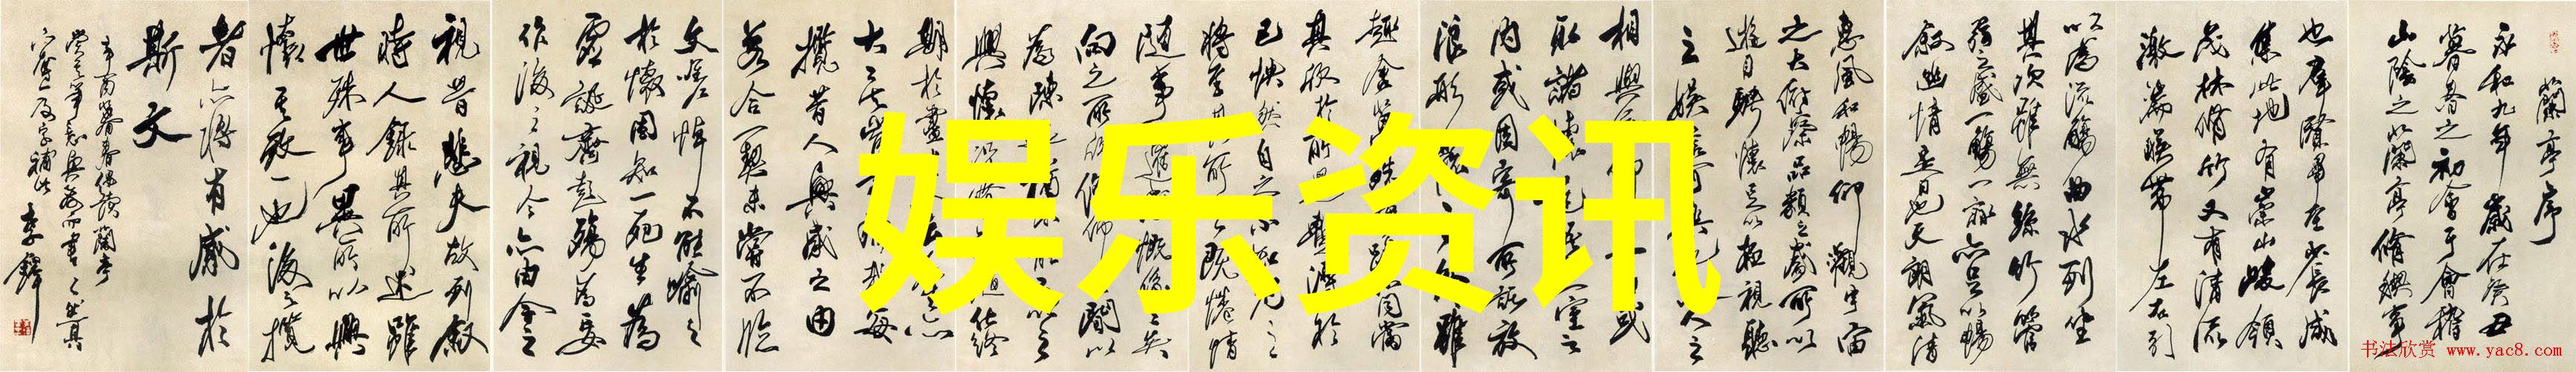 蘭亭序
永和九年歲在癸丑
暮春之初會于會稽
山陰之蘭亭修禊事
也群賢畢至少長咸
集此地有崇山峻領
茂林修竹又有清流
激湍暎帶左右引
以為流觴曲水列坐
其次雖無絲竹管
弦之盛一觴一詠亦足以暢
敘幽情是日也天朗氣清
惠風和暢仰觀宇宙
之大俯察品類之盛所以
遊目騁懷足以極視聽
之娛信可樂也夫人之
相與俯仰一世或
取諸懷一室之
內或因寄所託放
浪形之外雖
趣舍萬殊同當
其欣於所遇暫得於
已快然自足不知老之
將至所之既惓情
隨事遷感慨係之矣
向之所欣俛仰之間以
為陳跡猶不能不以之
興懷況脩短隨化終
期於盡
大矣豈不痛哉每
攬昔人興感之由
若合一契未嘗不臨
文嗟悼不能喻之
於懷固知一死生為
虛誕齊彭殤為妄
作後之視今亦由今之
視昔悲夫故列敘
時人錄其所述雖
世殊事異所以興
懷其致一也後之攬
者亦將有感於
斯文
辛酉暮春偶讀蘭亭
李鐸
娱乐资讯
书法欣赏 www.yac8.com